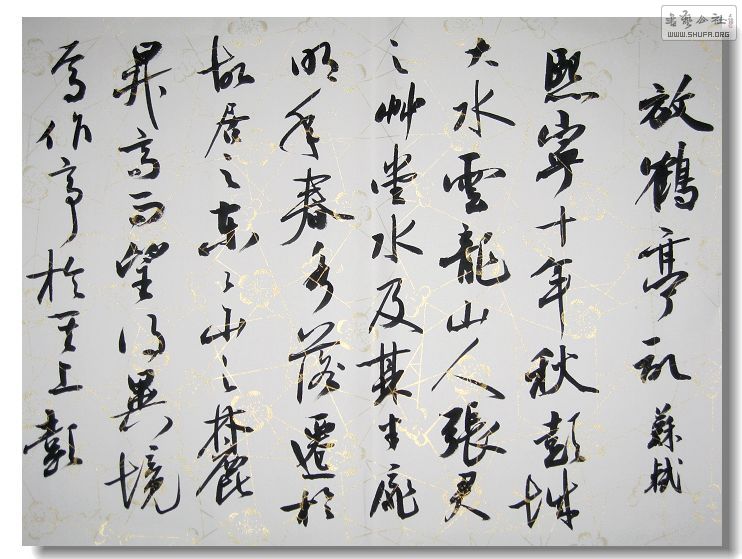 書藝公社
WWW.SHUFA.ORG
放鶴亭記 蘇軾
熙寧十年秋彭城
大水雲龍山人張君
之艸堂水及其半扉
明年春水落遷於
故居之東々山之麓
昇高而望得異境
焉作亭於其上彭